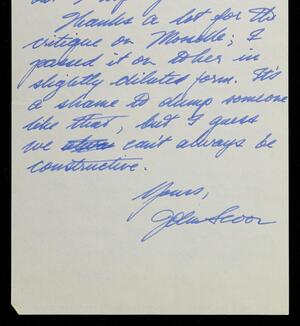 Thanks a lot for the
critique on Monette; I
passed it on to her in
slightly diluted form. It's
a shame to dump someone
like that, but I guess
we can't always be
constructive.
Yours,
John